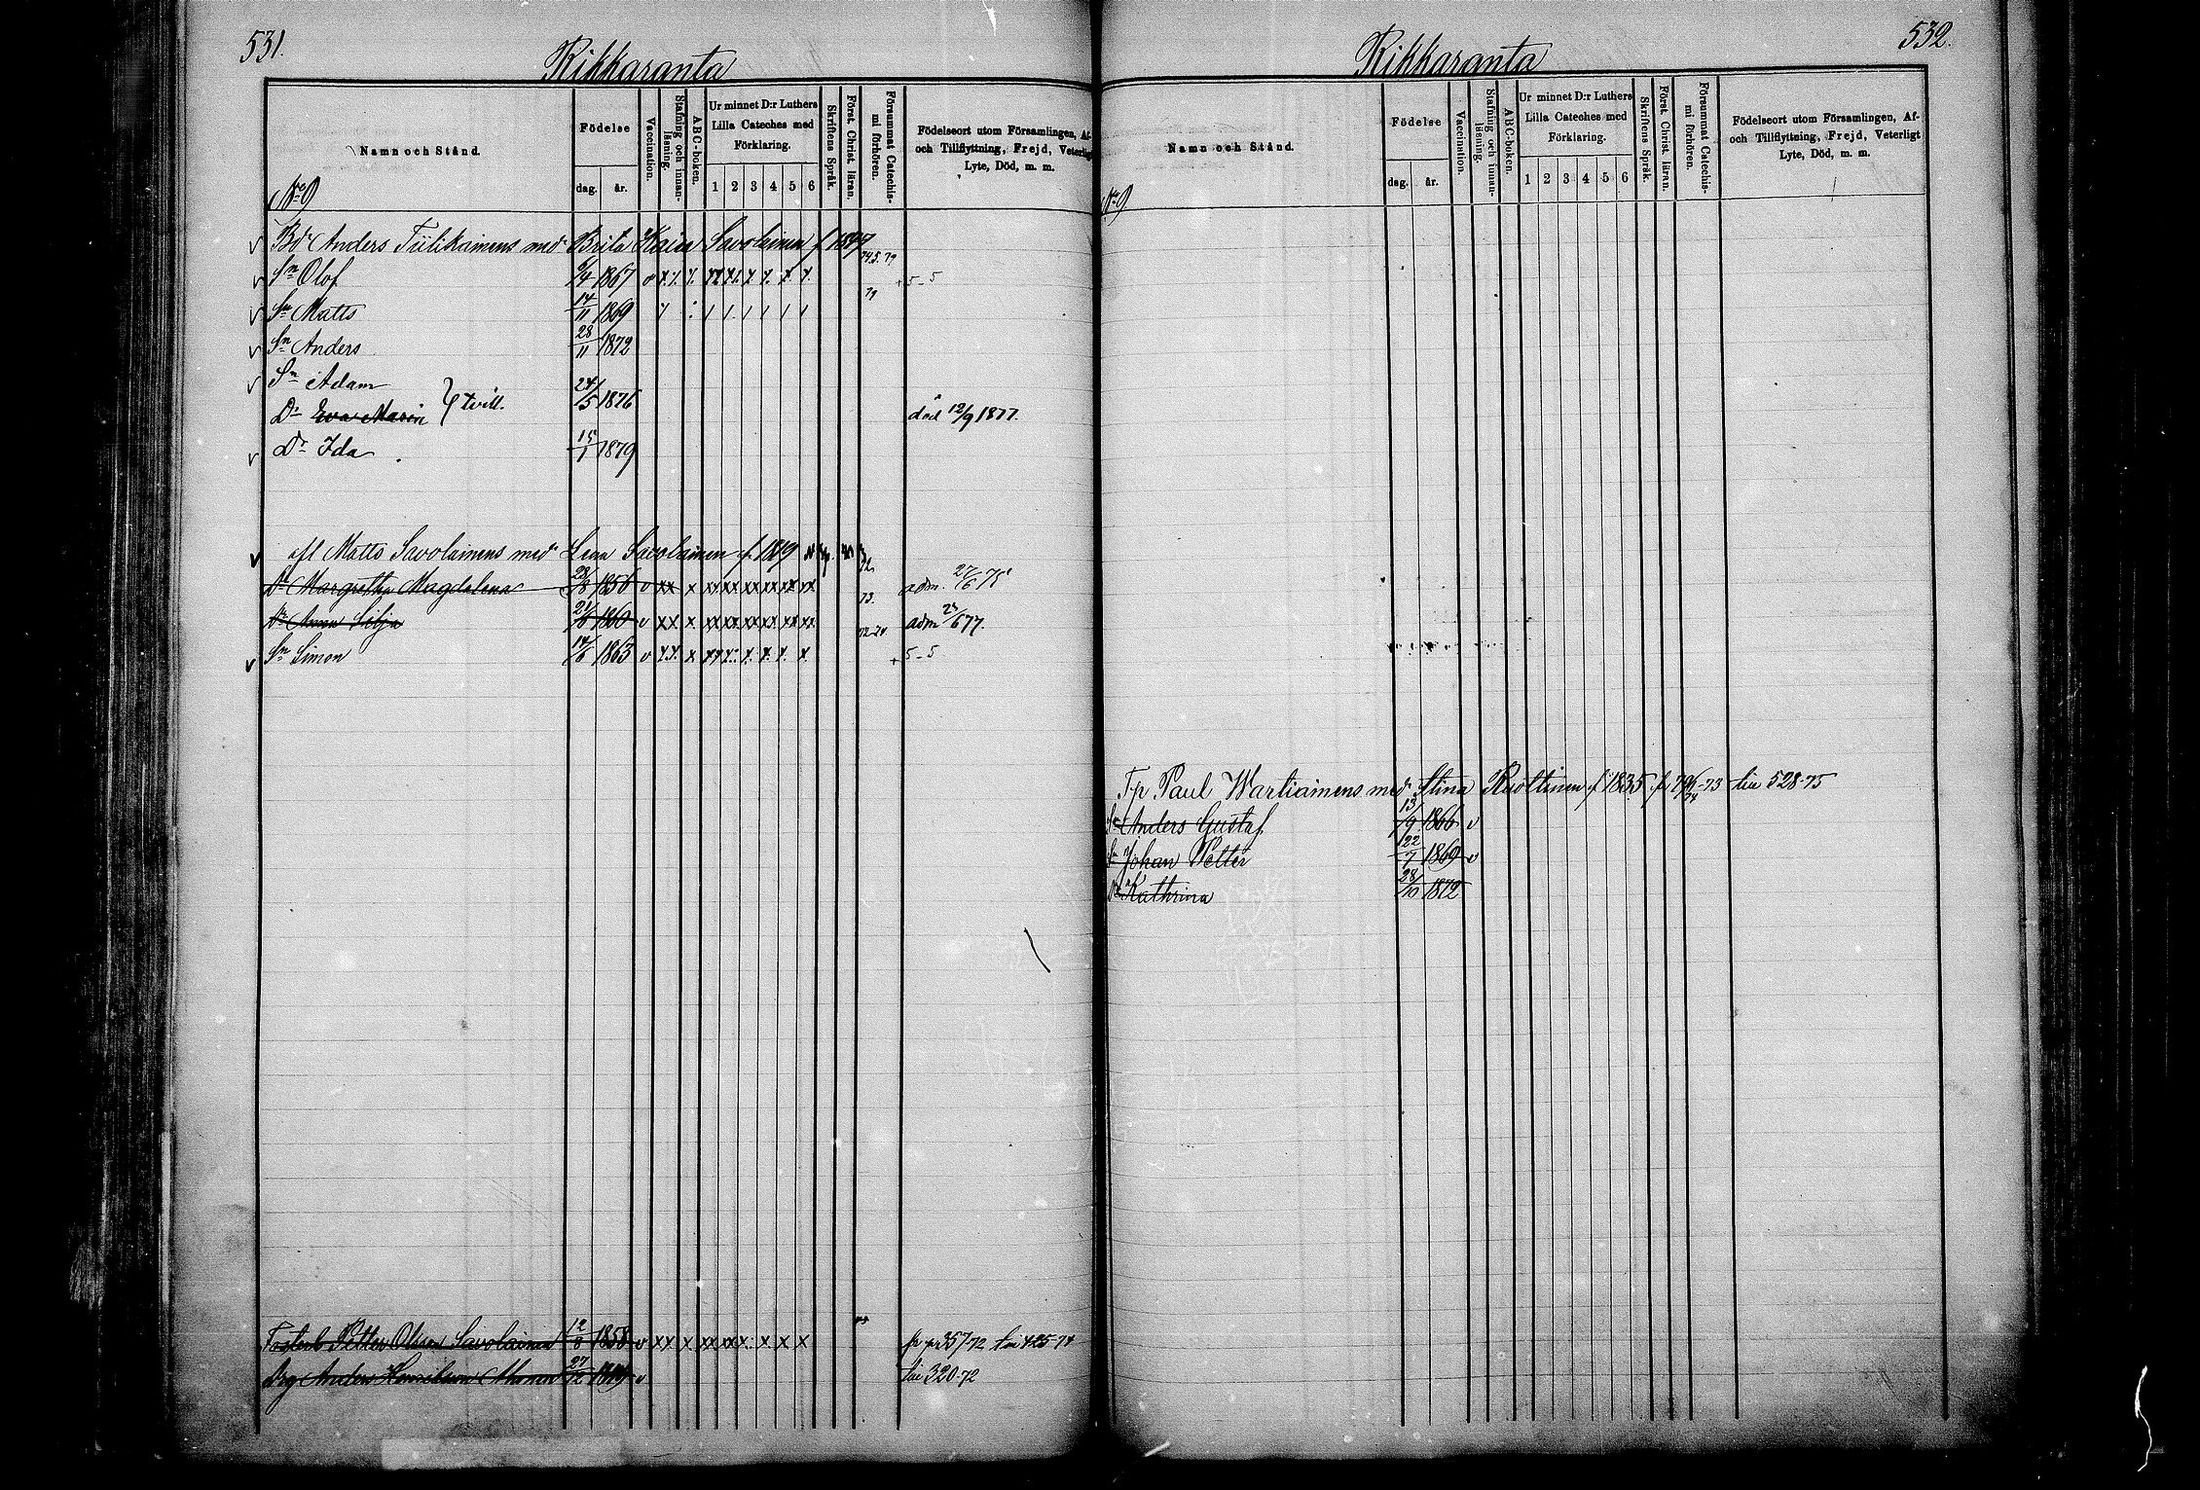 531.
Rikkaranta
Namn och Stånd.
Födelse
dag. år.
Vaccination.
Stafning och innan-läsning.
ABC-boken.
Ur minnet D:r Luthers
Lilla Cateches med
Förklaring.
1 2 3 4 5 6
Skriftens Språk.
Först. Christ. läran.
Försummat Catechis-
mi förhören.
Födelseort utom Församlingen, Af-
och Tillflyttning, Frejd, Veterligt
Lyte, Död, m. m.
No 9
v Bdr Anders Tiilikainens med Brita Kaisa Savolainen f 1847
v Sn Olof 6/4 1867 v x x x xx xx x x x x 74.5.79 + 5-5
v Sn Matts 14/11 1869 79
v Sn Anders 28/11 1872
v Sn Adam } tvill. 24/5 1876
Dr Eva Maria död 12/9 1877.
v Dr Ida 15/1 1879
v afl Matts Savolainens med Lena Savolainen f. 1819
Dr Margretha Magdalena 28/8 1856 v xx x xx xx xx xx xx xx adm. 27/6 75
Dr Anna Silja 21/6 1860 v xx x xx xx xx xx xx xx 73. adm 23/6 77.
v Sn Simon 14/6 1863 v x x x xx x x x x x 72-74 + 5-5
Petter Olsson Savolainen 12/8 1858 v xx x xx xx x x x x fr pr 357-72 till 425-74
Drg Anders Henriksson 27/12 v till 320-72
532.
Rikkaranta
Namn och Stånd.
Födelse
dag. år.
Vaccination.
Stafning och innan-läsning.
ABC-boken.
Ur minnet D:r Luthers
Lilla Cateches med
Förklaring.
1 2 3 4 5 6
Skriftens Språk.
Först. Christ. läran.
Försummat Catechis-
mi förhören.
Födelseort utom Församlingen, Af-
och Tillflyttning, Frejd, Veterligt
Lyte, Död, m. m.
No 9
Tp Paul Wartiainens med Stina Ruottinen f 1835 fr 796-73 till 528-75
Sn Anders Gustaf 13/9 1866 v
Sn Johan Petter 22/7 1869 v
Dr Kathrina 28/10 1872